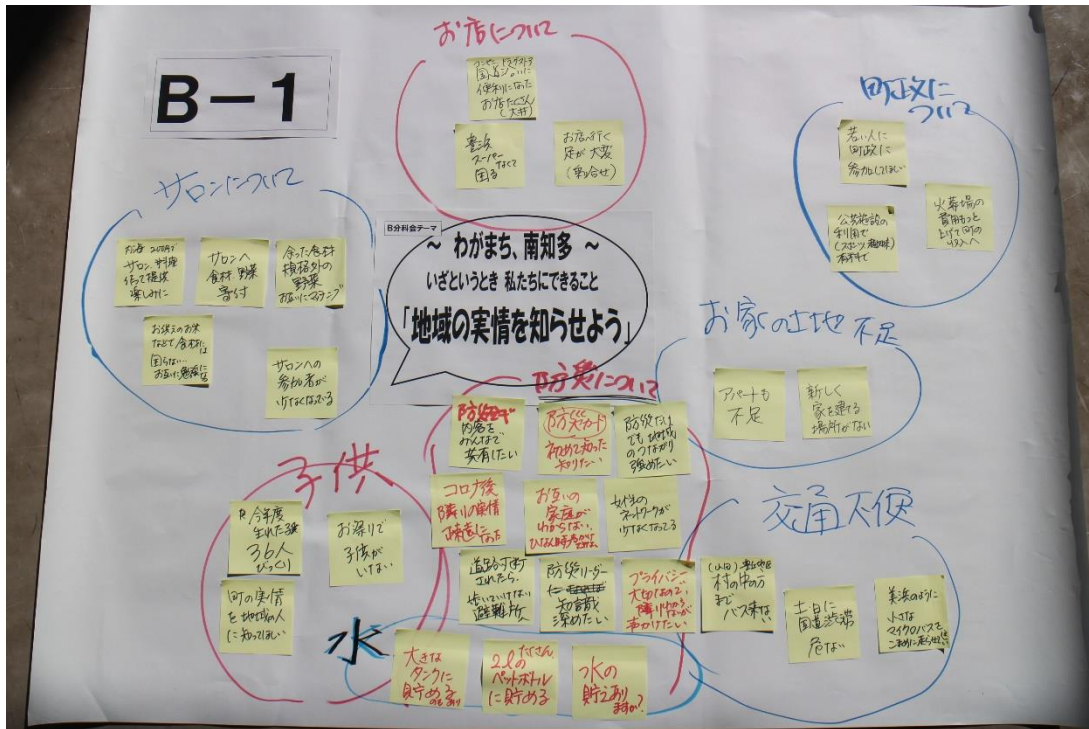 お店について
コンビニ ドラッグストア
国道ぞいに
便利になった
お店たくさん
(大井)
豊浜
スーパー
なくて
困る
お店へ行く
足が大変
(乗り合せ)
B-1
町政に
ついて
若い人に
町政に
参加してほしい
公共施設の
利用で
(スポーツ、趣味)
有料で
火葬場の
費用もっと
上げて町の
収入へ
サロンについて
サロン 料理
作って提供
楽しみに
サロンへ
食材、野菜
寄付
余った食材
規格外の
野菜
お互いにマッチング
お供えのお米
などで食材には
困らない…
サロンへの
参加者が
少なくなってる
B分科会テーマ
~ わがまち、南知多 ~
いざというとき 私たちにできること
「地域の実情を知らせよう」
お家の土地不足
アパートも
不足
新しく
家を建てる
場所がない
防災について
内容を
みんなで
共有したい
防災カード
初めて知った
知りたい
防災だけ
でも地域
のつながり
強めたい
コロナ後
隣りの実情
疎遠になった
お互いの
家庭が
わからない、
女性の
ネットワークが
少なくなってる
道路が寸断
されたら、
歩いていけない
避難所へ
防災リーダー
知識
深めたい
プライバシー
大切なので、
声かけたい
子供
今年度
生れた子供
36人
びっくり
お祭りで
子供が
いない
町の実情
を地域の人
に知ってほしい
水
大きな
タンクに
貯める
たくさん
2ℓの
ペットボトル
に貯める
水の
貯えあり
ますか?
交通不便
(山田)
村の中の方
まで
バス来ない
土・日に
国道渋滞
危ない
美浜のように
小さな
マイクロバスで
こまめに走らせてほしい